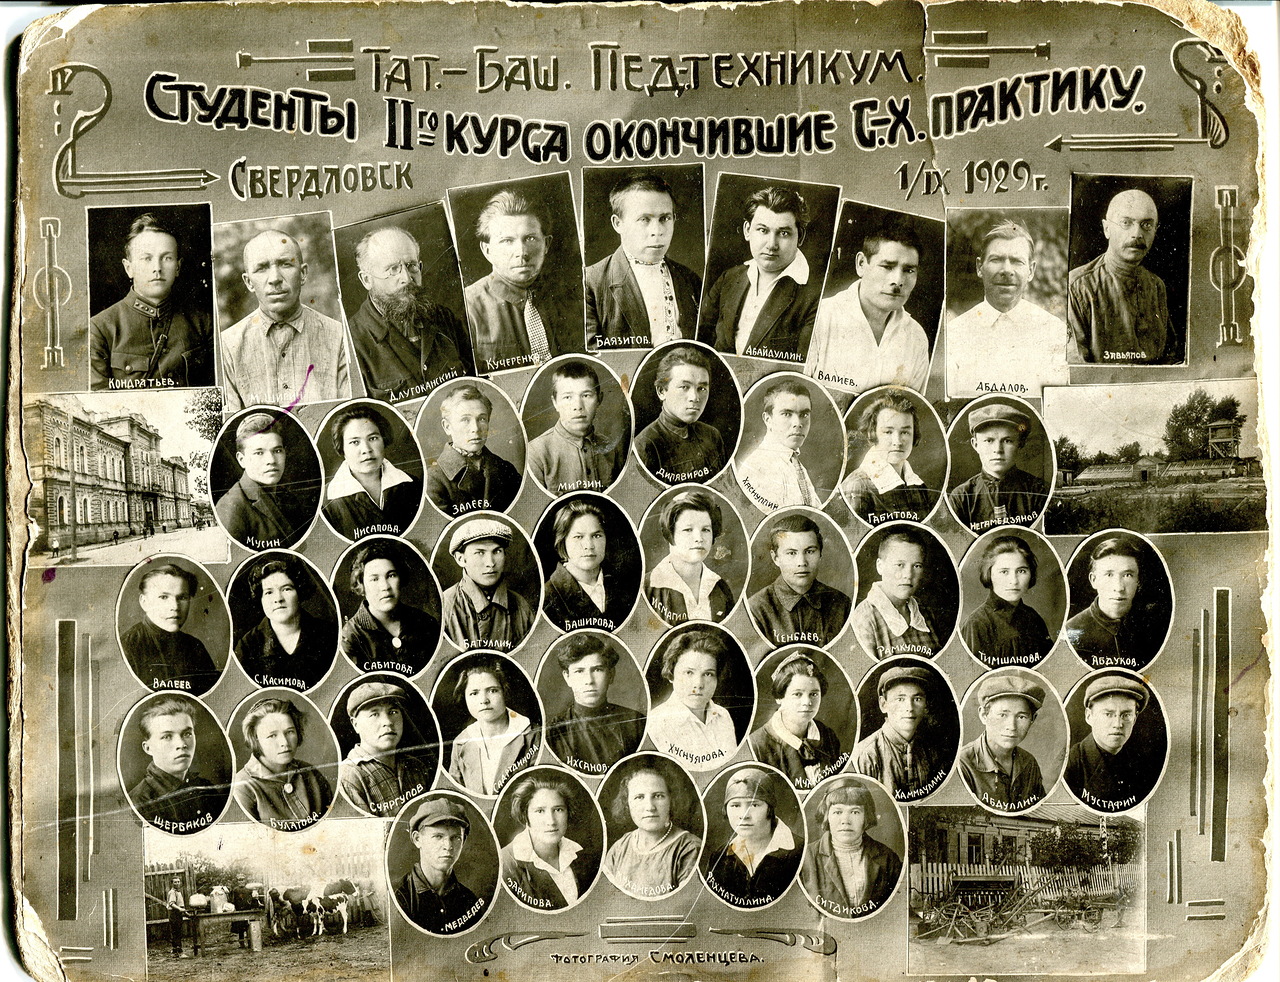 ТАТ.-БАШ. ПЕД-ТЕХНИКУМ.
СТУДЕНТЫ IIго КУРСА ОКОНЧИВШИЕ С-Х. ПРАКТИКУ.
СВЕРДЛОВСК
1/IX 1929г.
КОНДРАТЬЕВ.
ДЛУГОКАНСКИЙ.
КУЧЕРЕНКО
БАЯЗИТОВ.
АБАЙДУЛЛИН.
ВАЛИЕВ.
АБДАЛОВ.
ЗАВЬЯЛОВ
МУСИН
НИСАПОВА.
ЗАЛЕЕВ.
МИРЗИН.
ДИЛЯВИРОВ.
ХАСНУЛЛИН
ГАБИТОВА.
НЕГАМЕДЗЯНОВ
ВАЛЕЕВ
С.КАСИМОВА
САБИТОВА.
БАТУЛЛИН.
БАШИРОВА.
ЧЕНБАЕВ.
РАМКУЛОВА.
ТИМШАНОВА.
АБДУКОВ.
ЩЕРБАКОВ
БУЛАТОВА.
СУЯРГУЛОВ
ИХСАНОВ.
ХУСНУЯРОВА.
МУХАМЗЯНОВА
ХАММАТУЛЛИН
АБДУЛЛИН.
МУСТАФИН
МЕДВЕДЕВ
ЗАРИПОВА.
РАХМАТУЛЛИНА.
СИТДИКОВА.
ФОТОГРАФИЯ СМОЛЕНЦЕВА.